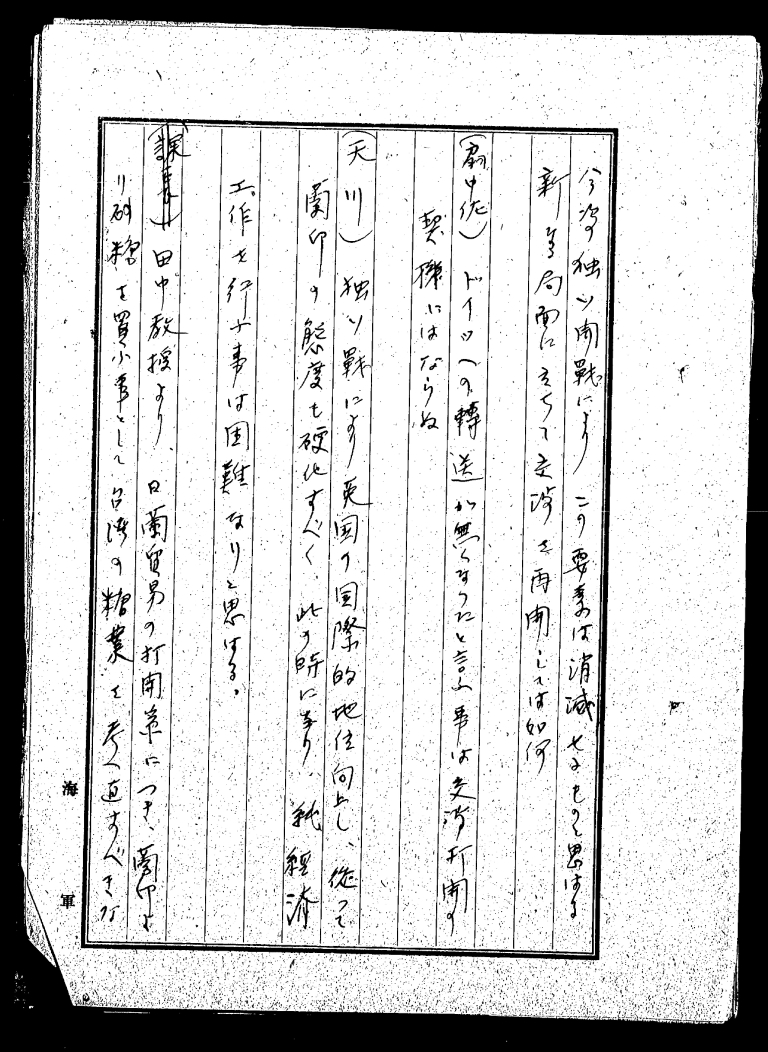 今次独ソ開戦により この要素は消滅せるものと思はる
新なる局面に立ちて交渉を再開しては如何
(扇中佐) ドイツへの轉送が無くなつたと言ふ事は交渉打開の
契機にはならぬ
(天川) 独ソ戰により英国の国際的地位向上し、従つて
蘭印の態度も硬化すべく、此の時に当り、純経済
工作を行ふ事は困難なりと思はる。
(課長) 田中教授より、日蘭貿易の打開策につき、蘭印よ
り砂糖を買ふ事として台湾の糖業を考へ直すべきな
海軍